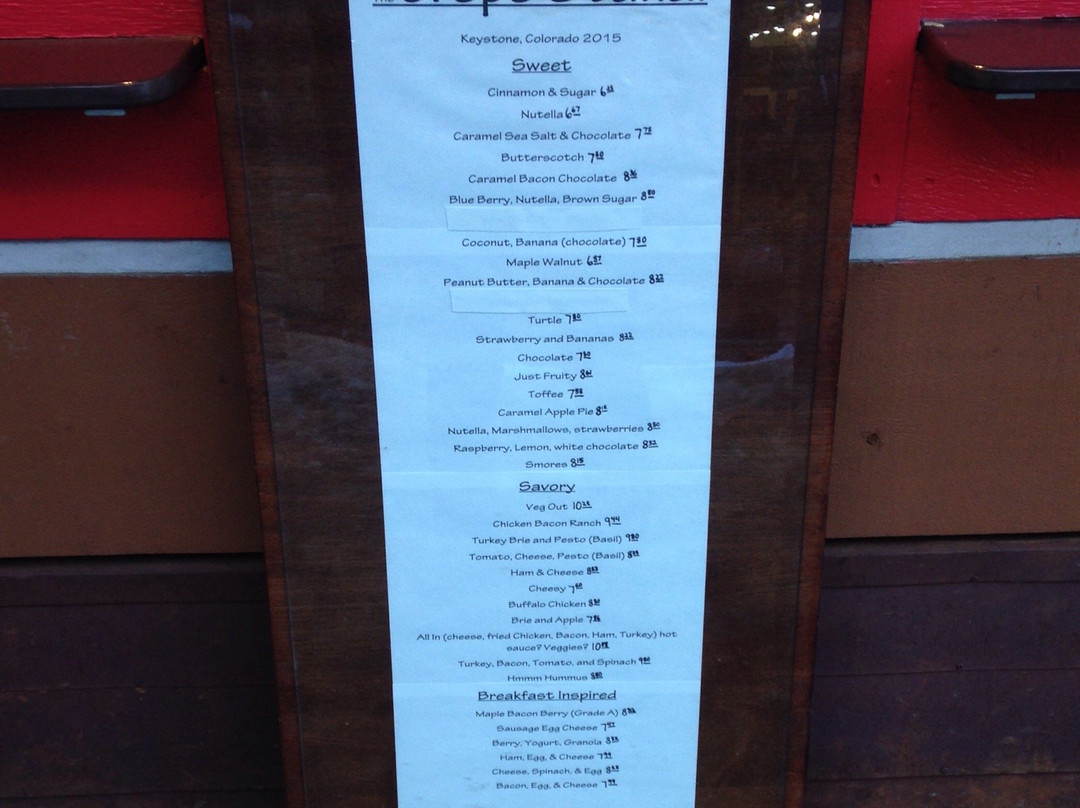 Keystone, Colorado 2015
Sweet
Cinnamon & Sugar
Nutella 6.67
Caramel Sea Salt & Chocolate 7.78
Butterscotch
Caramel Bacon Chocolate
Blue Berry, Nutella, Brown Sugar 8.80
Coconut, Banana (chocolate) 7.80
Maple Walnut 6.87
Peanut Butter, Banana & Chocolate
Turtle 7.80
Strawberry and Bananas
Chocolate
Just Fruity
Toffee
Caramel Apple Pie
Nutella, Marshmallows, strawberries
Raspberry, Lemon, white chocolate
Smores
Savory
Veg Out
Chicken Bacon Ranch 9.44
Turkey Brie and Pesto (Basil)
Tomato, Cheese, Pesto (Basil)
Ham & Cheese
Cheesy
Buffalo Chicken
Brie and Apple
All In (cheese, fried Chicken, Bacon, Ham, Turkey) hot
sauce? Veggies?
Turkey, Bacon, Tomato, and Spinach
Hmmm Hummus
Breakfast Inspired
Maple Bacon Berry (Grade A)
Sausage Egg Cheese
Berry, Yogurt, Granola
Ham, Egg, & Cheese
Cheese, Spinach, & Egg
Bacon, Egg, & Cheese